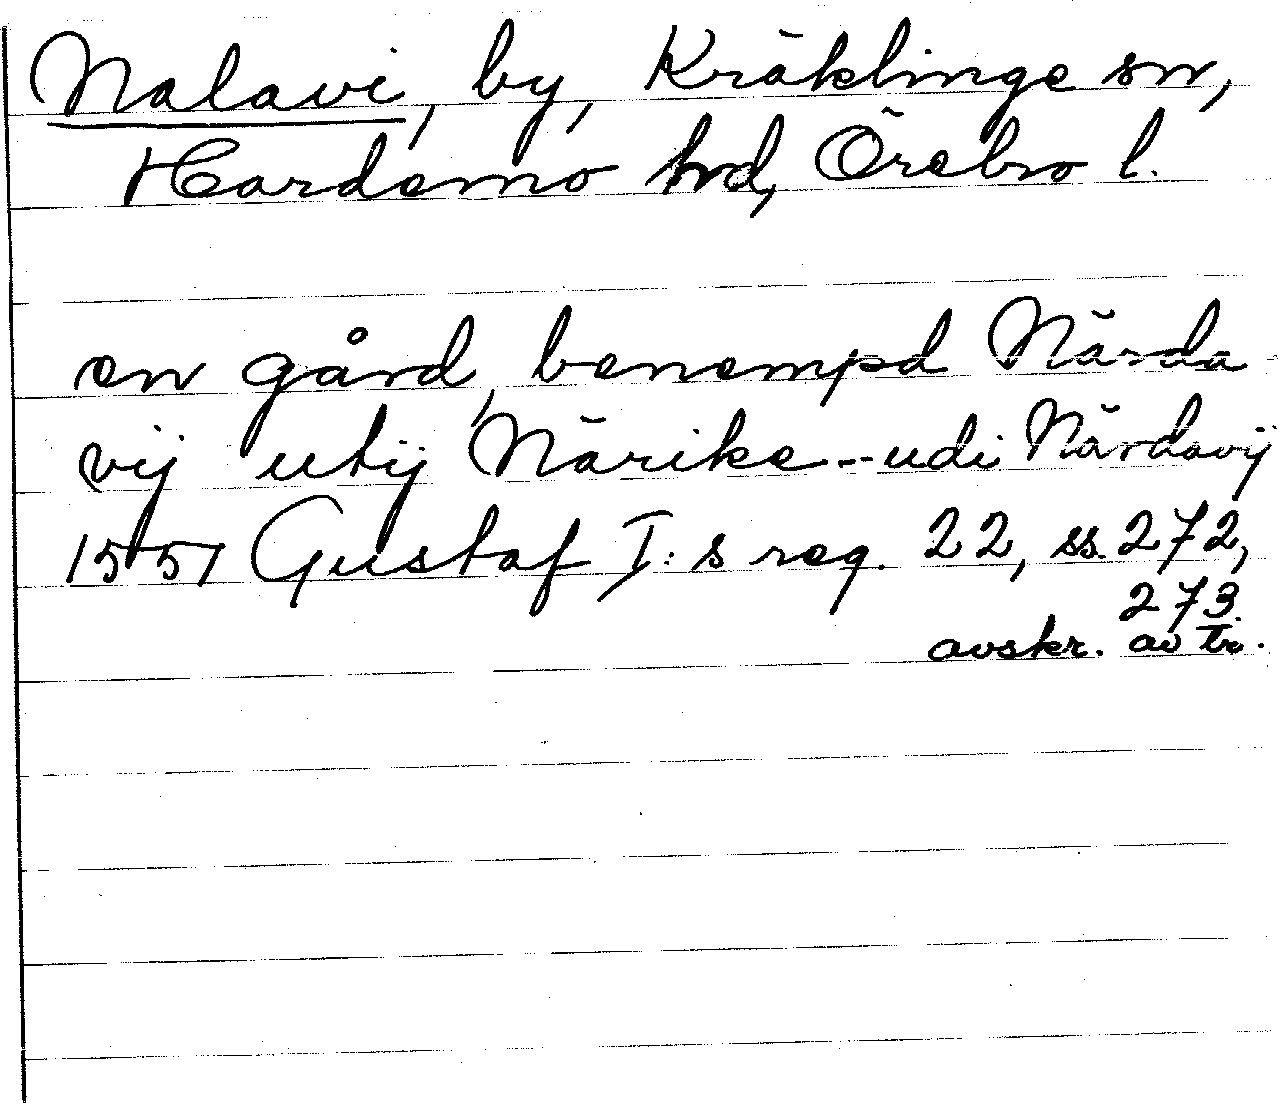 Nalavi, by, Kräklinge sn,
Hardemo hd, Örebro l.
en gård, benempd Närda
vij utij Närike -- udi Närdavij
1551 Gustaf I:s reg. 22, ss. 272,
273.
avskr. av tr.